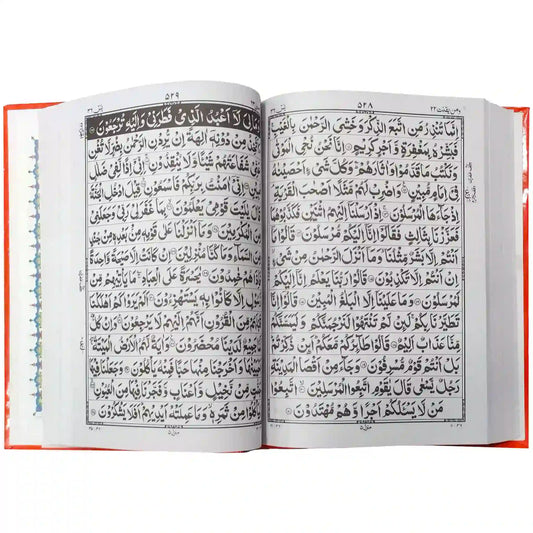 ۵۲۸
ومن یقنت ۲۲
اِنَّمَا تُنْذِرُ مَنِ اتَّبَعَ الذِّكْرَ وَخَشِيَ الرَّحْمٰنَ بِالْغَيْبِ
فَبَشِّرْهُ بِمَغْفِرَةٍ وَّاَجْرٍ كَرِيْمٍ اِنَّا نَحْنُ نُحْيِ الْمَوْتٰى
وَنَكْتُبُ مَا قَدَّمُوْا وَاٰثَارَهُمْ وَكُلَّ شَيْءٍ اَحْصَيْنٰهُ
فِيْٓ اِمَامٍ مُّبِيْنٍ وَاضْرِبْ لَهُمْ مَّثَلًا اَصْحٰبَ الْقَرْيَةِ
اِذْ جَآءَهَا الْمُرْسَلُوْنَ اِذْ اَرْسَلْنَآ اِلَيْهِمُ اثْنَيْنِ فَكَذَّبُوْهُمَا
فَعَزَّزْنَا بِثَالِثٍ فَقَالُوْٓا اِنَّآ اِلَيْكُمْ مُّرْسَلُوْنَ قَالُوْا
مَآ اَنْتُمْ اِلَّا بَشَرٌ مِّثْلُنَا وَمَآ اَنْزَلَ الرَّحْمٰنُ مِنْ شَيْءٍ
اِنْ اَنْتُمْ اِلَّا تَكْذِبُوْنَ قَالُوْا رَبُّنَا يَعْلَمُ اِنَّآ اِلَيْكُمْ
لَمُرْسَلُوْنَ وَمَا عَلَيْنَآ اِلَّا الْبَلٰغُ الْمُبِيْنُ قَالُوْٓا اِنَّا
تَطَيَّرْنَا بِكُمْ لَئِنْ لَّمْ تَنْتَهُوْا لَنَرْجُمَنَّكُمْ وَلَيَمَسَّنَّكُمْ
مِّنَّا عَذَابٌ اَلِيْمٌ قَالُوْا طَآئِرُكُمْ مَّعَكُمْ اَئِنْ ذُكِّرْتُمْ
بَلْ اَنْتُمْ قَوْمٌ مُّسْرِفُوْنَ وَجَآءَ مِنْ اَقْصَا الْمَدِيْنَةِ
رَجُلٌ يَّسْعٰى قَالَ يٰقَوْمِ اتَّبِعُوا الْمُرْسَلِيْنَ اتَّبِعُوْا
مَنْ لَّا يَسْئَلُكُمْ اَجْرًا وَّهُمْ مُّهْتَدُوْنَ
۵۲۹
لَآ اَعْبُدُ الَّذِيْ فَطَرَنِيْ وَاِلَيْهِ تُرْجَعُوْنَ
مِنْ دُوْنِهٖٓ اٰلِهَةً اِنْ يُّرِدْنِ الرَّحْمٰنُ بِضُرٍّ لَّا تُغْنِ
عَنِّيْ شَفَاعَتُهُمْ شَيْئًا وَّلَا يُنْقِذُوْنِ اِنِّيْٓ اِذًا لَّفِيْ ضَلٰلٍ
مُّبِيْنٍ اِنِّيْٓ اٰمَنْتُ بِرَبِّكُمْ فَاسْمَعُوْنِ قِيْلَ ادْخُلِ الْجَنَّةَ
قَالَ يٰلَيْتَ قَوْمِيْ يَعْلَمُوْنَ بِمَا غَفَرَلِيْ رَبِّيْ وَجَعَلَنِيْ
مِنَ الْمُكْرَمِيْنَ وَمَآ اَنْزَلْنَا عَلٰى قَوْمِهٖ مِنْ بَعْدِهٖ مِنْ جُنْدٍ
مِّنَ السَّمَآءِ وَمَا كُنَّا مُنْزِلِيْنَ اِنْ كَانَتْ اِلَّا صَيْحَةً وَّاحِدَةً
فَاِذَا هُمْ خٰمِدُوْنَ يٰحَسْرَةً عَلَى الْعِبَادِ مَا يَاْتِيْهِمْ مِّنْ
رَّسُوْلٍ اِلَّا كَانُوْا بِهٖ يَسْتَهْزِءُوْنَ اَلَمْ يَرَوْا كَمْ اَهْلَكْنَا
قَبْلَهُمْ مِّنَ الْقُرُوْنِ اَنَّهُمْ اِلَيْهِمْ لَا يَرْجِعُوْنَ وَاِنْ كُلٌّ لَّمَّا
جَمِيْعٌ لَّدَيْنَا مُحْضَرُوْنَ وَاٰيَةٌ لَّهُمُ الْاَرْضُ الْمَيْتَةُ
اَحْيَيْنٰهَا وَاَخْرَجْنَا مِنْهَا حَبًّا فَمِنْهُ يَاْكُلُوْنَ وَجَعَلْنَا فِيْهَا
جَنّٰتٍ مِّنْ نَّخِيْلٍ وَّاَعْنَابٍ وَّفَجَّرْنَا فِيْهَا مِنَ الْعُيُوْنِ
لِيَاْكُلُوْا مِنْ ثَمَرِهٖ وَمَا عَمِلَتْهُ اَيْدِيْهِمْ اَفَلَا يَشْكُرُوْنَ